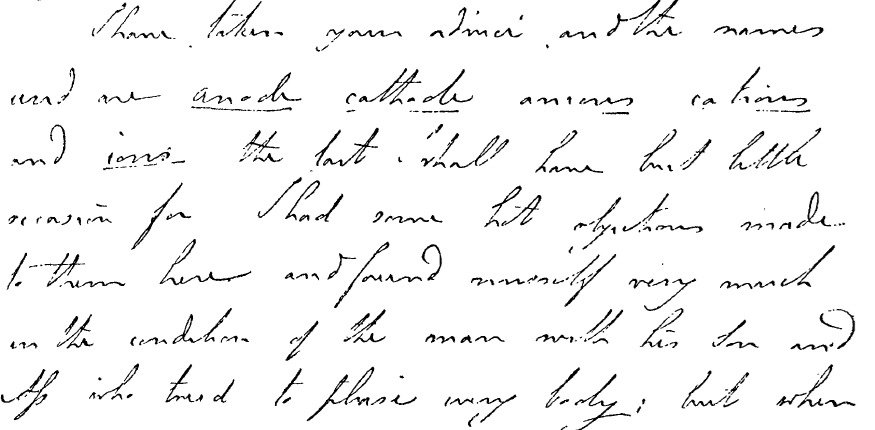 I have taken your advice and the names
used are anode cathode anions cations
and ions the last I shall have but little
occasion for I had some hot objections made
to them here and found myself very much
in the condition of the man with his Son and
Ass who tried to please every body; but when